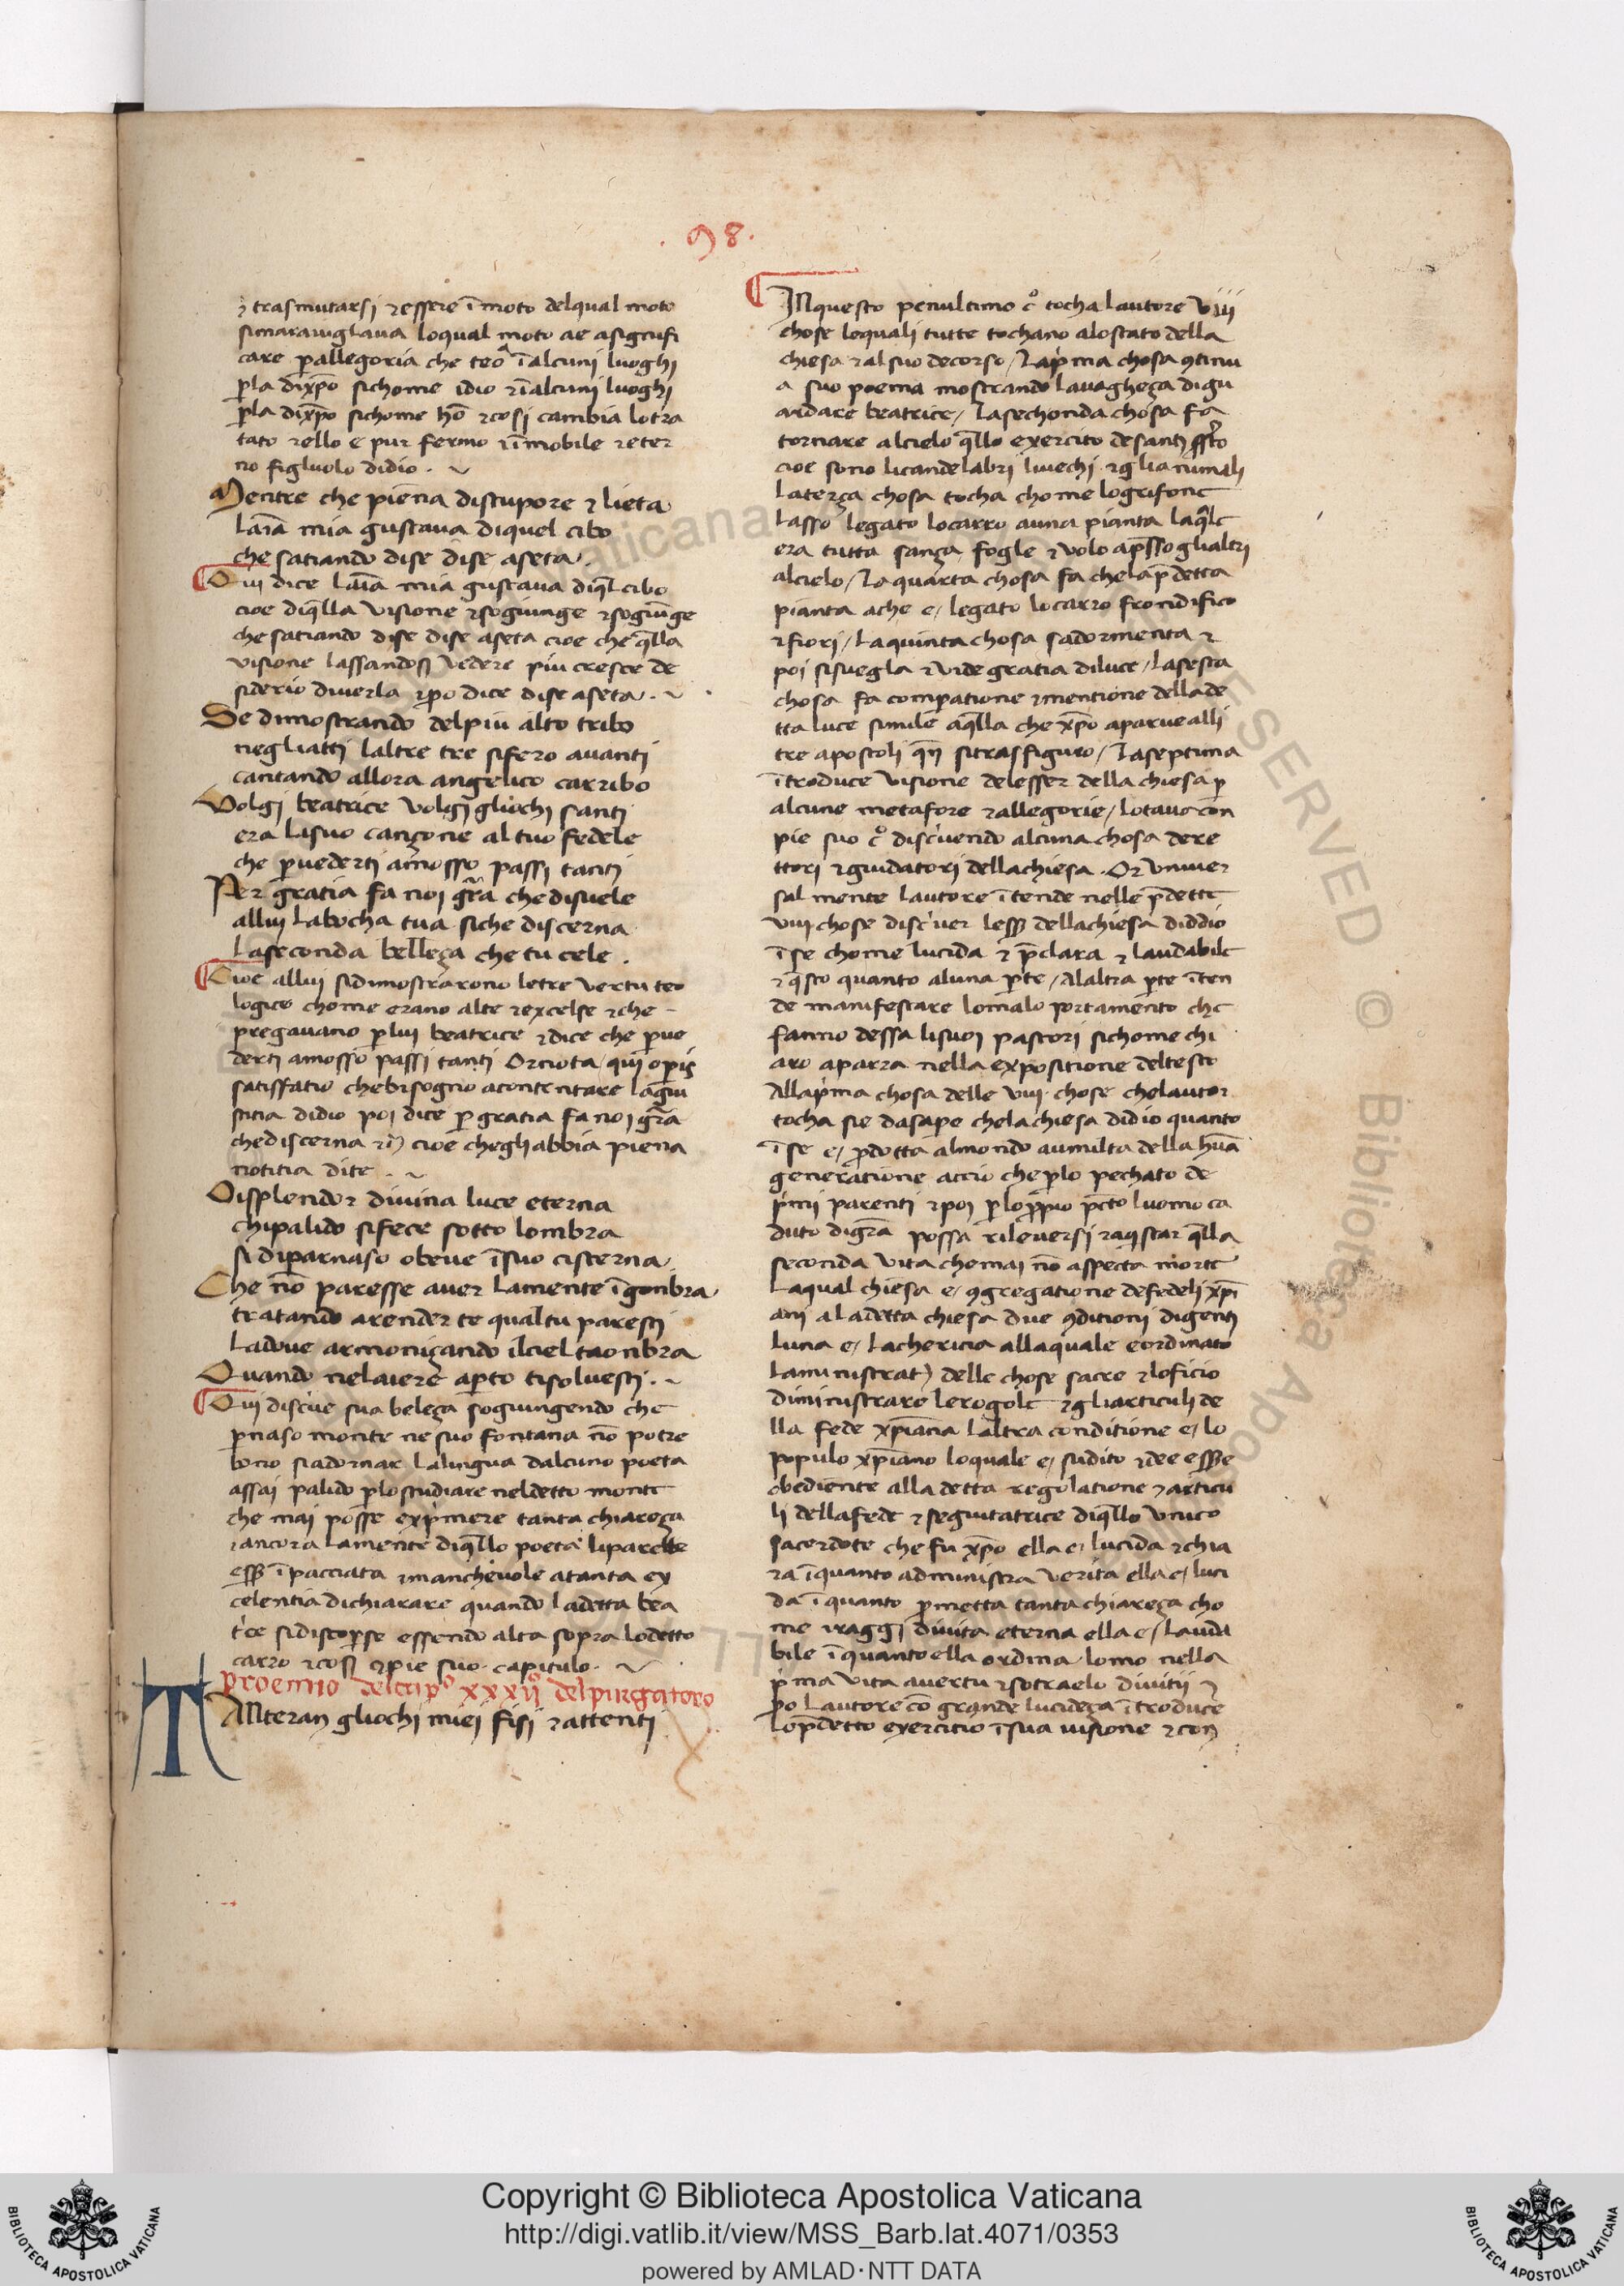 . 98 .
⁊ trasmutarsi ⁊ essere ī moto delqual moto
simarauiglaua loqual moto ae asignifi
care p allegoria che teo ī alcuni luoghi
p la di xp̄o sichome idio ⁊ ī alcuni luoghi
p la di xp̄o sichome hō ⁊ cosi cambia lo tra
tato ⁊ ello e pur fermo ⁊ ī mobile ⁊ eter
no figluolo didio .
Mentre che piena distupore ⁊ lieta
laīa mia gustaua diquel cibo
che satiando dise dise aseta .
Qui dice laīa mia gustaua diq̄l cibo
cioe diq̄lla visione ⁊ sogiunge ⁊ sogiūge
che satiando dise dise aseta cioe che q̄lla
visione lassandosi vedere piu cresce de
siderio diuerla ⁊ po dice dise aseta .
Se dimostrando delpiu alto tribo
negliatti laltre tre sifero auanti
cantando allora angelico carribo
Volgi beatrice volgi gliochi santi
era lasuo canzone altuo fedele
che p uederti a mosso passi tanti
Per gratia fa noi gr̄a che disuele
allui labocha tua siche discerna
laseconda belleza che tu cele .
Cioe allui sidimostrarono letre vertu teo
logice chome erano alte ⁊ excelse ⁊ che
pregauano p lui beatrice ⁊ dice che p ue
derti amosso passi tanti Or nota qui opis
satisfatio che bisogno acontentare lagiu
stitia didio poi dice p gratia fa noi gr̄a
che discerna ⁊c̄ cioe che gli abbia piena
notitia dite .
Oisplendor diuina luce eterna
chi palido sifece sotto lombra
si diparnaso o beue ī suo cisterna
Che nō paresse auer lamente īgonbra
tratando arender te qualtu paresti
Ladoue armonizando ilciel taonbra
Quando nelaiere apto tisoluesti .
Qui discue sua beleza sogiungendo che
p naso monte ne suo fontana nō potre
bono siadornar lalingua dalcuno poeta
assai palido p lo studiare neldetto monte
che mai posse exp̄mere tanta chiareza
⁊ ancora lamente diq̄llo poeta liparebbe
ess̄ ī pacciata ⁊ mancheuole atanta ex
celentia dichiarare quando ladetta bea
t̄ce sidiscopse essendo alta sopra lodetto
carro ⁊ cosi 9pie suo capitulo .
Proemio delcapº xxxijº del purgatoro
TAnteran gliochi miei fisi ⁊ attenti
INquesto penultimo cº tocha lautore viij
chose lequali tutte tochano alostato della
chiesa ⁊ alsuo decorso / Lap̄ma chosa 9tinu
a suo poema mostrando lauagheza digu
ardare beatrice / Lasechonda chosa fa
tornare alcielo q̄llo exercito desanti
cioe sono licandelabri liuechi ⁊ gli animali
Laterza chosa tocha chome logrifone
Lasso legato locarro auna pianta laq̄le
era tutta sanza fogle ⁊ volo ap̄sso glialtri
alcielo / La quarta chosa fa che lap̄detta
pianta ache e / legato locarro frondifico
⁊ fiori / La quinta chosa sadormenta ⁊
poi sisuegla ⁊ vide gratia diluce / Lasesta
chosa fa compatione ⁊ mentione della de
tta luce simile aq̄lla che xp̄o aparue alli
tre apostoli qn̄ sitrasfiguro / Laseptima
ītroduce visione delesser della chiesa p
alcune metafore ⁊ allegorie / Lotauo con
pie suo cº discriuendo alcuna chosa dere
ttori ⁊ guidatori dellachiesa . Or vniuer
sal mente lautore ītende nelle p̄dette
viij chose discriuer less̄ dellachiesa diddio
ī se chome lucida ⁊ p̄clara ⁊ laudabile
⁊ q̄sto quanto aluna pte / Alaltra pte ītēn
de manifestare lomalo portamento che
fanno dessa lisuoi pastori sichome chi
aro aparra nella expositione deltesto
Allap̄ma chosa delle viij chose chelautor
tocha sie dasape chelachiesa didio quanto
ī se e / p̄dotta almondo aumilta della hūa
generatione accio che p lo pechato de
p̄mi parenti ⁊ poi p lo p̄pio pcto luomo ca
duto digr̄a possa rileuersi ⁊ aq̄star q̄lla
seconda vita che mai nō aspecta morte
Laqual chiesa e / 9gregatione defedeli xp̄i
ani a ladetta chiesa due 9ditioni digenti
luna e / Lachericia allaquale e ordinato
Laministrat) delle chose sacre ⁊ loficio
diministrare lerogole ⁊ gliarticuli de
lla fede xp̄iana Laltra conditione e / lo
populo xp̄iano loquale e / sudito ⁊ dee esse
obediente alla detta regolatione ⁊ articu
li dellafede ⁊ seguitatrice diq̄llo vnico
sacerdote che fu xp̄o ella e / lucida ⁊ chia
ra ī quanto administra verita ella e / luci
da ī quanto p̄metta tanta chiareza cho
me iraggi diuita eterna ella e / lauda
bile ī quanto ella ordina lomo nella
p̄ma vita auertu ⁊ sotraelo diuitii ⁊
po Lautore cō grande lucideza ītroduce
lop̄detto exercitio ī sua uisione ⁊ con
Copyright © Biblioteca Apostolica Vaticana
http://digi.vatlib.it/view/MSS_Barb.lat.4071/0353
powered by AMLAD·NTT DATA